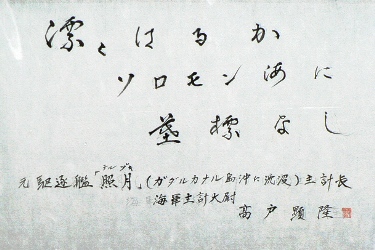 漂々はるか
ソロモン海に
墓標なし
元駆逐艦「照月」(ガダルカナル島沖に沈没)主計長
テルヅキ
海軍主計大尉
高戸顕隆